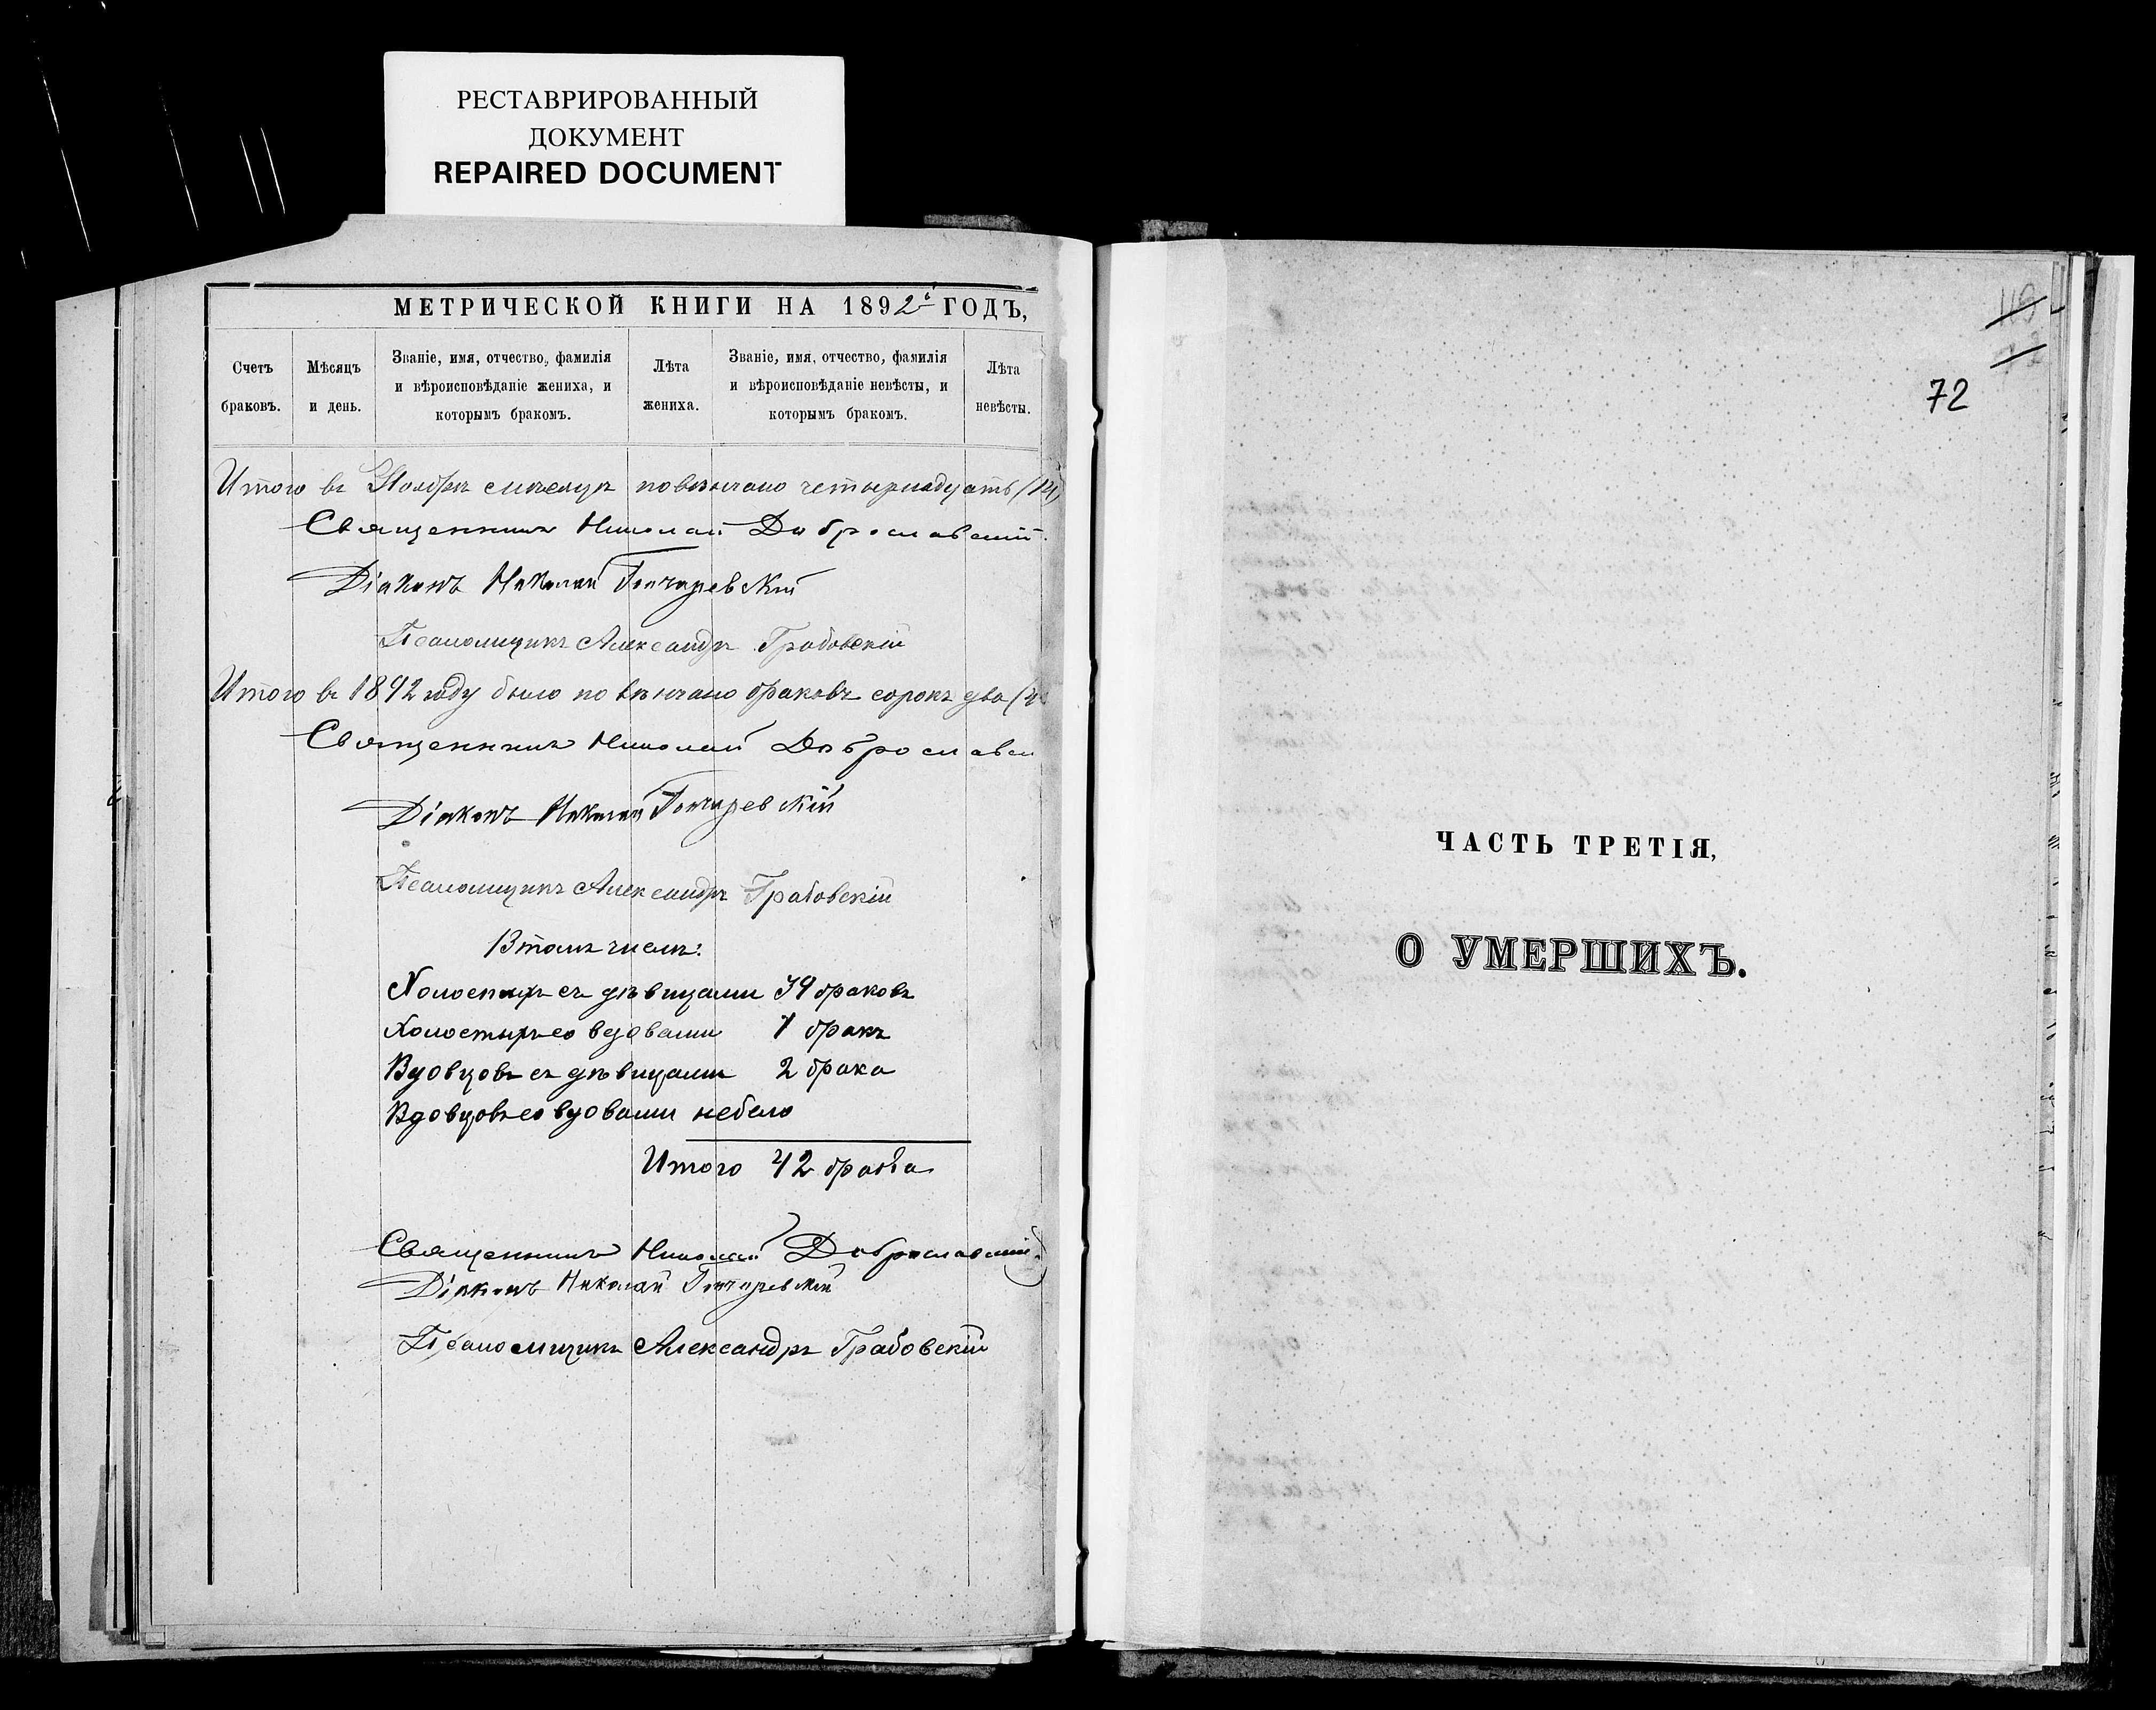 РЕСТАВРИРОВАННЫЙ
ДОКУМЕНТ
REPAIRED DOCUMENT
МЕТРИЧЕСКОЙ КНИГИ НА 1892й ГОДЪ,
Счетъ
браковъ.
Мѣсяцъ
и день.
Званіе, имя, отчество, фамилія
и вѣроисповѣданіе жениха, и
которымъ бракомъ.
Лѣта
жениха.
Званіе, имя, отчество, фамилія
и вѣроисповѣданіе невѣсты, и
которымъ бракомъ.
Лѣта
невѣсты.
Итого въ Ноябрѣ мѣсяцѣ повѣнчано четырнадцать (14)
Священникъ Николай Доброславскій.
Діаконъ Николай Гончаревскій
Псаломщикъ Александръ Грабовскій
Итого въ 1892 году было повѣнчано браковъ сорокъ два (4
Священникъ Николай Доброславск
Діаконъ Николай Гончаревскій
Псаломщикъ Александръ Грабовскій
Въ томъ числѣ:
Холостыхъ съ дѣвицами 39 браковъ
Холостыхъ со вдовами 1 бракъ
Вдовцовъ съ дѣвицами 2 брака
Вдовцовъ со вдовами небыло
Итого 42 брака
Священникъ Николай Доброславскій
Діаконъ Николай Гончаревскій
Псаломщикъ Александръ Грабовскій
119
72
ЧАСТЬ ТРЕТІЯ,
О УМЕРШИХЪ.